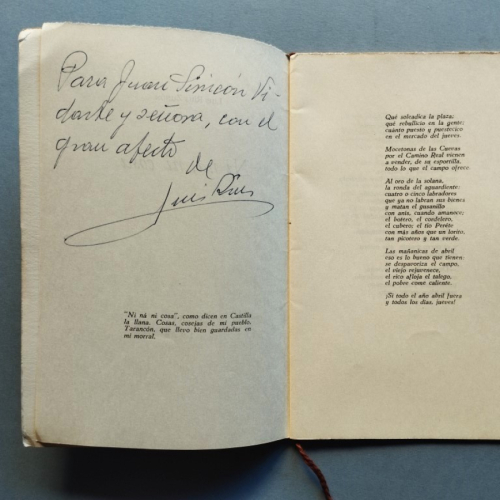 Para Juan Simeón Vi-
darte y señora, con el
gran afecto
de
Luis Rius
"Ni ná ni cosa", como dicen en Castilla
la llana. Cosas, cosejas de mi pueblo,
Tarancón, que llevo bien guardadas en
mi morral.
Qué selvadica la plaza;
qué rebullicio en la gente;
cuánto puesto y puestecico
en el mercado del jueves.
Mocetonas de las Cuevas
por el Camino Real vienen
a vender, de su esportilla,
todo lo que el campo ofrece.
Al oro de la solana,
la ronda del aguardiente:
cuatro o cinco labradores
que ya no labran sus bienes
y matan el gusanillo
con anís, cuando amanece;
el botero, el cordelero,
el cubero; el tío Perête
con más años que un lorito,
tan picotero y tan verde.
Las mañanicas de abril
eso es lo bueno que tienen:
se despavoriza el campo,
el viejo rejuvenece,
el rico afloja el talego,
el pobre come caliente.
¡Si todo el año abril fuera
y todos los días, jueves!